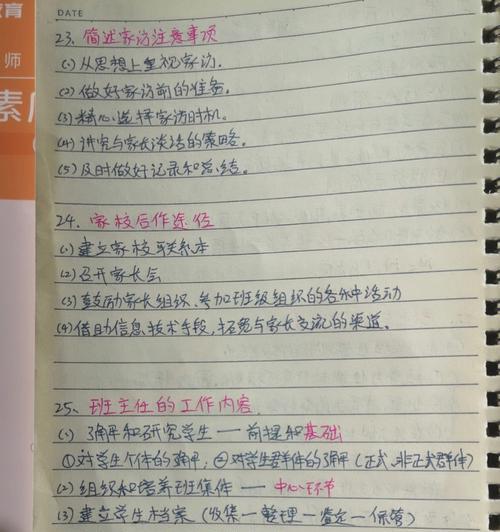 育
师
素
DATE
23、简述家访注意事项
(1)从思想上重视家访.
(2)做好家访前的准备。
(3)精心选择家访时机。
(4)讲究与家长谈话的策略。
(5)及时做好记录和总结。
24、家校合作途径
(1)建立家校联系本
(2)召开家长会
(3)鼓励家长组织、参加班级组织的各种活动
(4)借助信息技术手段,拓宽与家长交流的渠道。
25、班主任的工作内容
(1)了解和研究学生——前提和基础
①对学生个体的了解;②对学生群体的了解(正式、非正式群体)
(2)组织和培养班集体——中心环节
(3)建立学生档案(收集—整理—鉴定—保管)